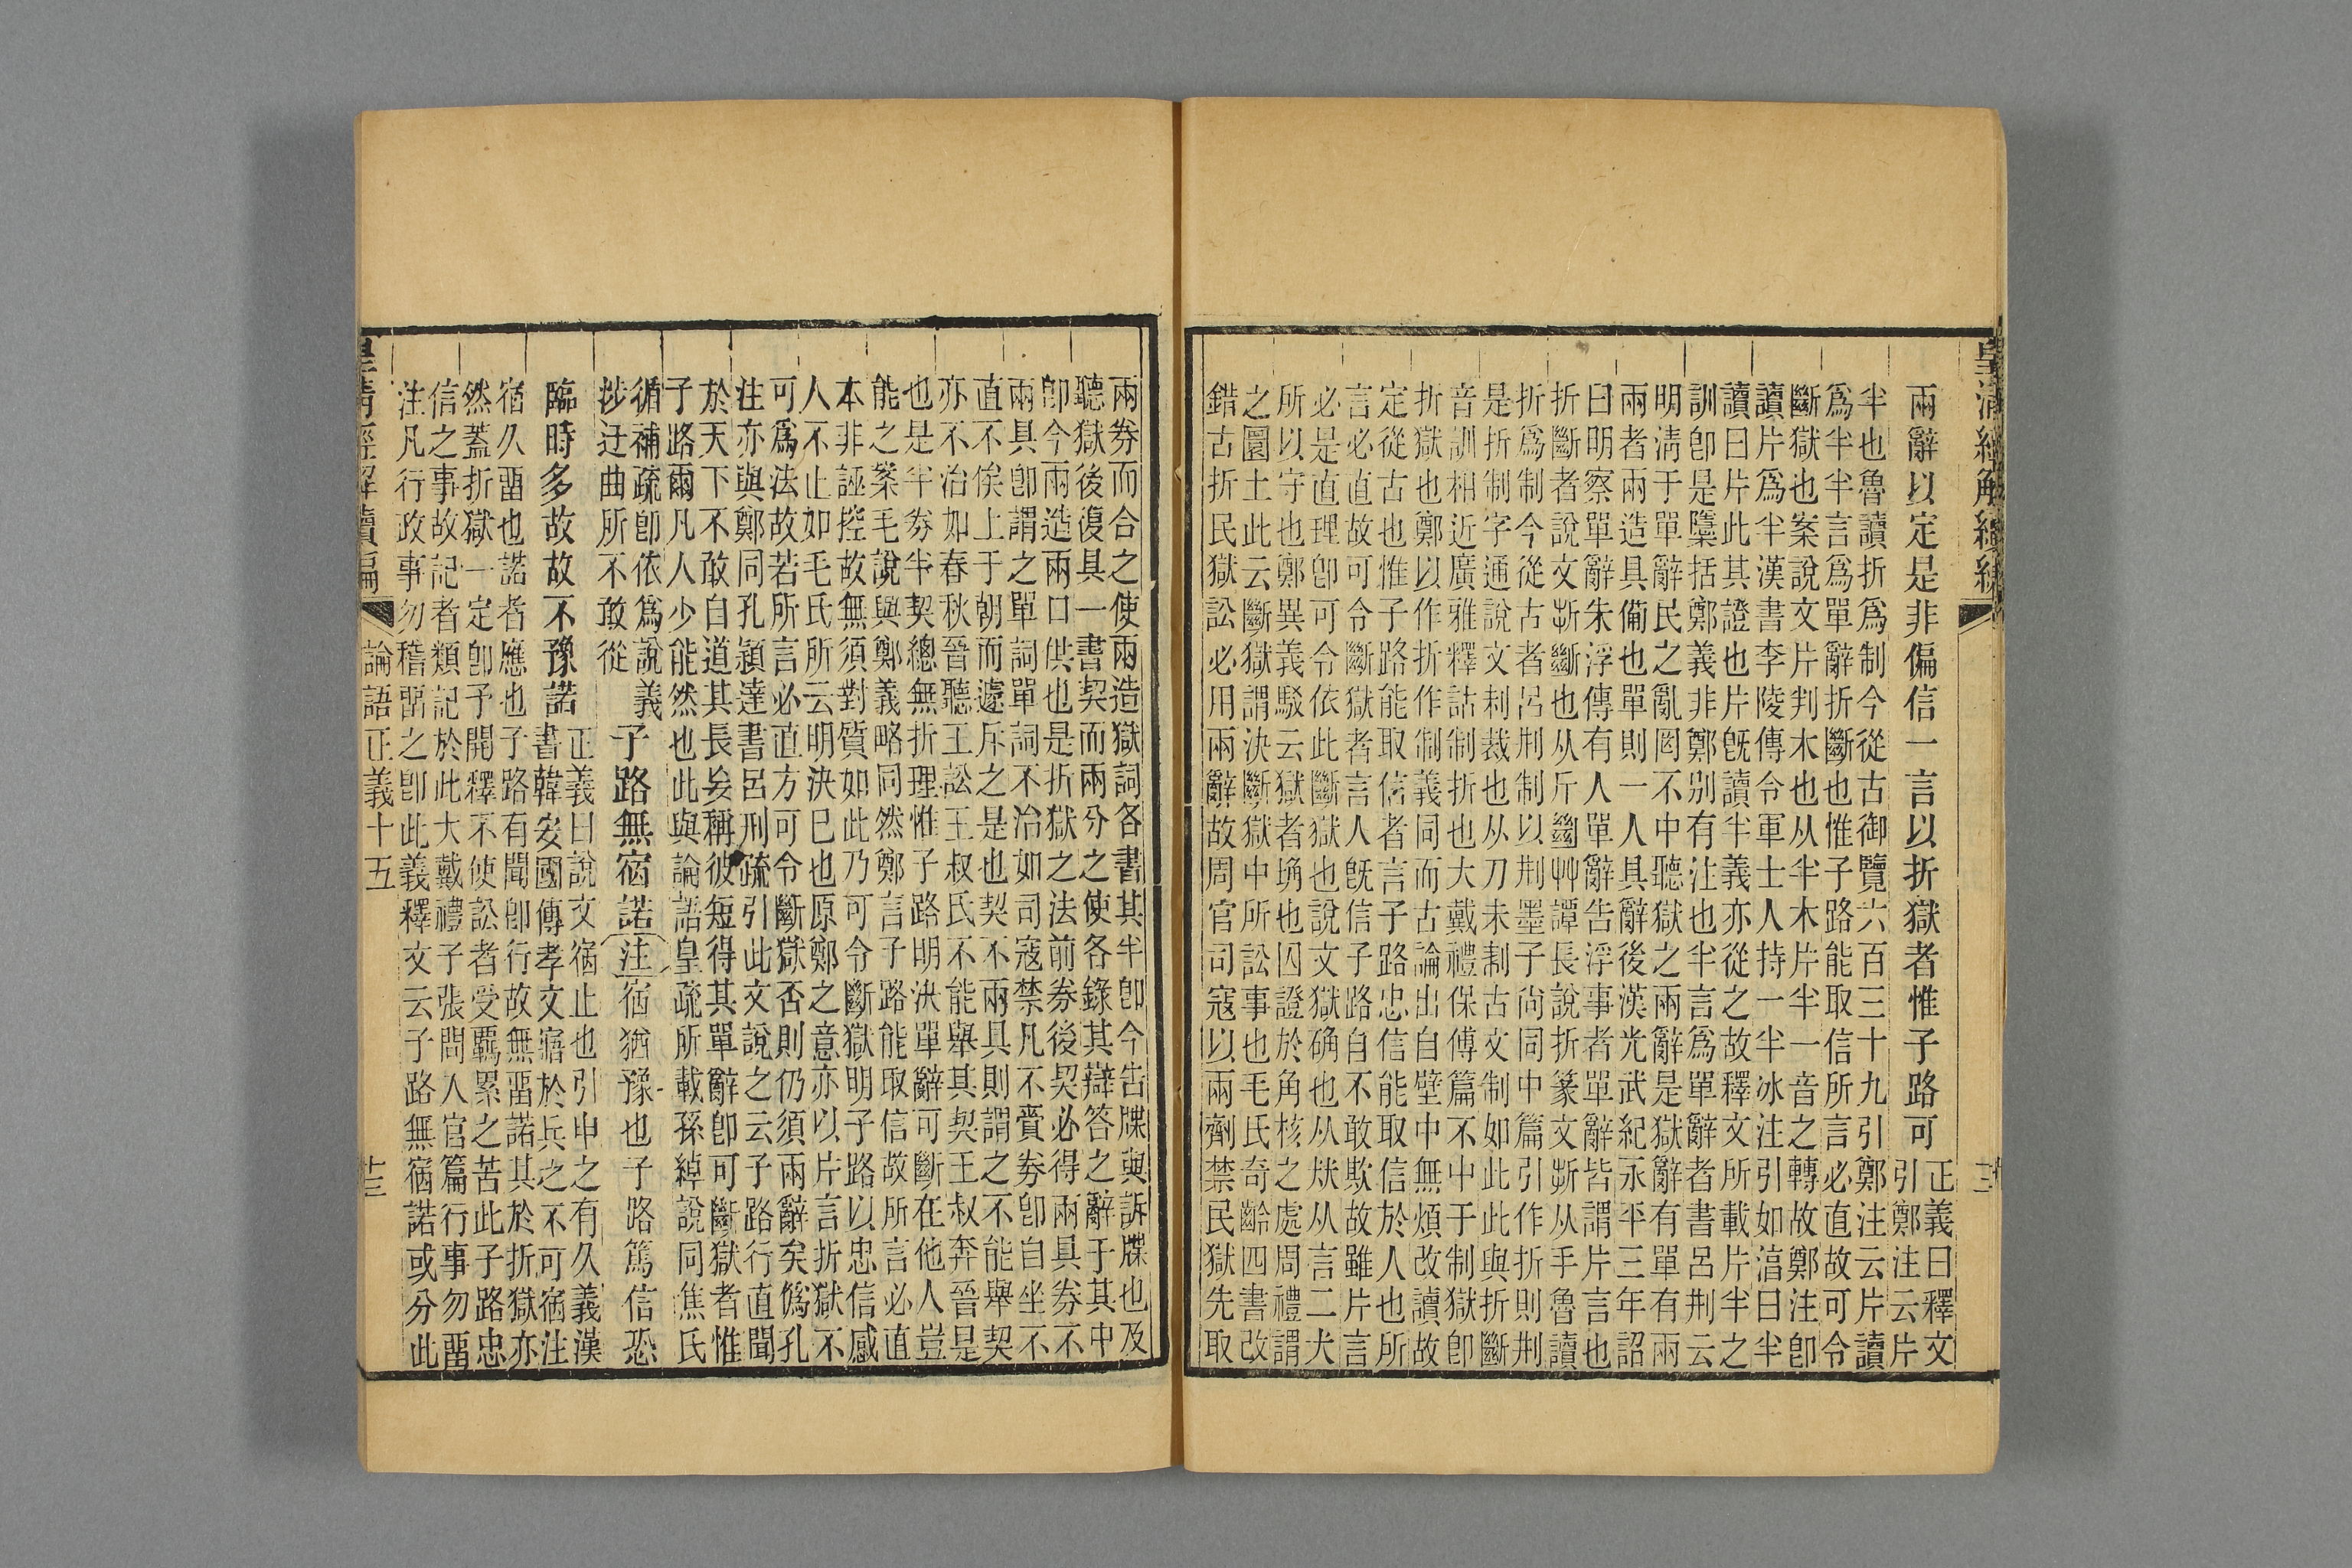 皇清經解續編
兩辭以定是非偏信一言以折獄者惟子路可
正義曰釋文
引鄭注云片
半也魯讀折爲制今從古御覽六百三十九引鄭注云片讀
爲半半言爲單辭折斷也惟子路能取信所言必直故可令
斷獄也案說文片判木也从半木片半一音之轉故鄭注卽
讀片爲半漢書李陵傳令軍士人持一半冰注引如湻曰半
讀曰片此其證也片旣讀半義亦從之故釋文所載片半之
訓卽是檃括鄭義非鄭別有注也半言爲單辭者書呂刑云
明淸于單辭民之亂罔不中聽獄之兩辭是獄辭有單有兩
兩者兩造具備也單則一人具辭後漢光武紀永平三年詔
曰明察單辭朱浮傳有人單辭告浮事者單辭皆謂片言也
折斷者說文斯斷也从斤斷艸譚長說折篆文斯从手魯讀
折爲制今從古者呂刑制以刑墨子尚同中篇引作折則刑
是折制字通說文制裁也从刀未制古文制如此此與折斷
音訓相近廣雅釋詁制折也大戴禮保傅篇不中于制獄卽
折獄也鄭以作折作制義同而古論出自壁中無煩改讀故
定從古也惟子路能取信者言子路忠信能取信於人也所
言必直故可令斷獄者言人旣信子路自不敢欺故雖片言
必是直理卽可令依此斷獄也說文獄确也从㹜从言二犬
所以守也鄭異義駁云獄者埆也囚證於角核之處周禮謂
之圜土此云斷獄謂決斷獄中所訟事也毛氏奇齡四書改
錯古折民獄訟必用兩辭故周官司寇以兩劑禁民獄先取
兩券而合之使兩造獄詞各書其半卽今告牒與訴牒也及
聽獄後復具一書契而兩分之使各錄其辯答之辭于其中
卽今兩造兩口供也是折獄之法前券後契必得兩具券不
兩具卽謂之單詞單詞不治如司寇禁凡不賫券卽自坐不
直不俟上于朝而遽斥之是也契不兩具則謂之不能舉契
亦不治如春秋晉聽王訟王叔氏不能舉其契王叔奔晉是
也是半券半契總無折理惟子路明決單辭可斷在他人豈
能之案毛說與鄭義略同然鄭言子路能取信故所言必直
本非誣控故無須對質如此乃可令斷獄明子路以忠信感
人不止如毛氏所云明決已也原鄭之意亦以片言折獄不
可爲法故若所言必直方可令斷獄否則仍須兩辭矣僞孔
注亦與鄭同孔穎達書呂刑疏引此文說之云子路行直聞
於天下不敢自道其長妄稱彼短得其單辭卽可斷獄者惟
子路爾凡人少能然也此與論語皇疏所載孫綽說同焦氏
循補疏卽依爲說義
涉迂曲所不敢從
子路無宿諾注宿猶豫也子路篤信恐
臨時多故故不豫諾
正義曰說文宿止也引申之有久義漢
書韓安國傳孝文寤於兵之不可宿注
宿久畱也諾者應也子路有聞卽行故無畱諾其於折獄亦
然蓋折獄一定卽予開釋不使訟者受羈累之苦此子路忠
信之事故記者類記於此大戴禮子張問人官篇行事勿畱
注凡行政事勿稽畱之卽此義釋文云子路無宿諾或分此
皇清經解續編
論語正義十五